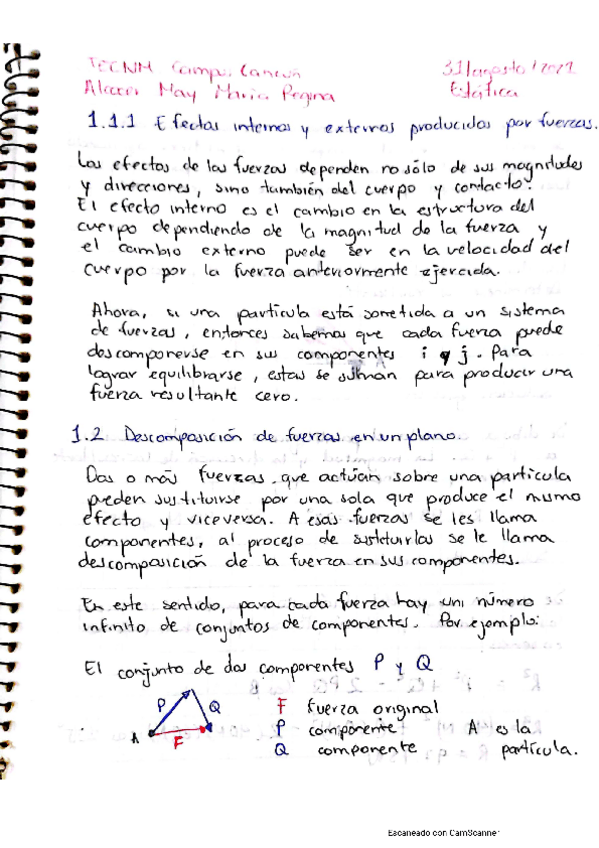 TECNM Campus Cancún 31/agosto/2021
Alcocer May Maria Regina Estática
1.1.1 Efectos internos y externos producidos por fuerzas.
Los efectos de las fuerzas dependen no sólo de sus magnitudes
y direcciones, sino también del cuerpo y contacto.
El efecto interno es el cambio en la estructura del
cuerpo dependiendo de la magnitud de la fuerza y
el cambio externo puede ser en la velocidad del
cuerpo por la fuerza anteriormente ejercida.
Ahora, si una partícula está sometida a un sistema
de fuerzas, entonces sabemos que cada fuerza puede
descomponerse en sus componentes i y j. Para
lograr equilibrarse, estas se suman para producir una
fuerza resultante cero.
1.2 Descomposición de fuerzas en un plano.
Dos o más fuerzas que actúan sobre una partícula
pueden sustituirse por una sola que produce el mismo
efecto y viceversa. A esas fuerzas se les llama
componentes, al proceso de sustituirlas se le llama
descomposición de la fuerza en sus componentes.
En este sentido, para cada fuerza hay un número
infinito de conjuntos de componentes. Por ejemplo:
El conjunto de dos componentes P y Q
P Q F fuerza original
A F P componente A es la
Q componente partícula.
Escaneado con CamScanner